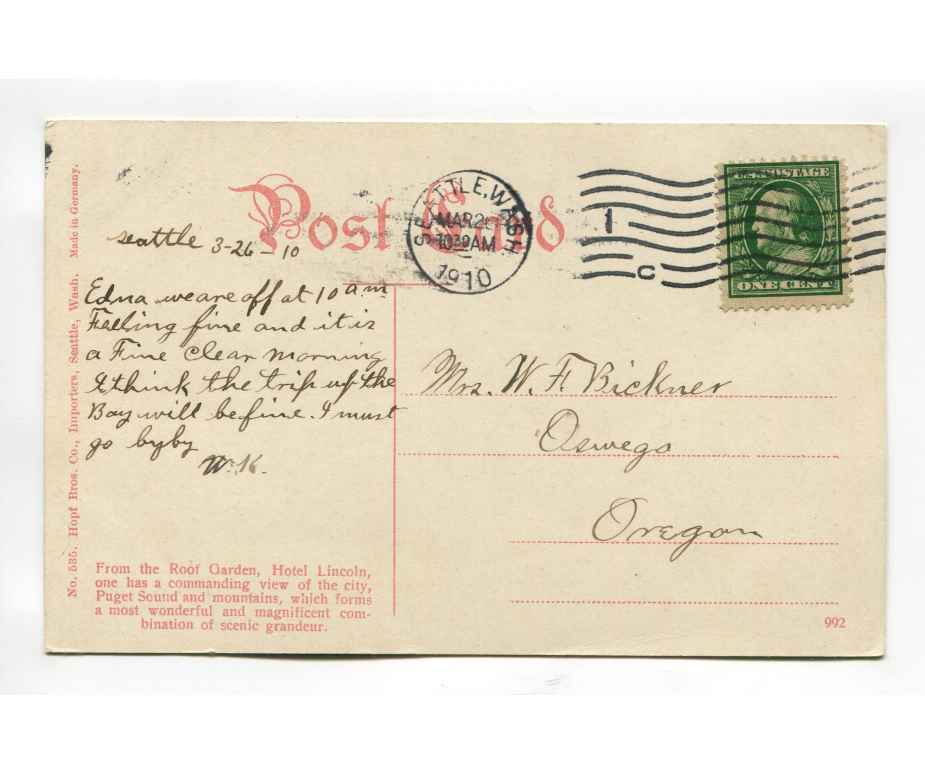 Post Card
SEATTLE, WASH.
MAR 26
10 30 AM
1910
1
C
U.S. POSTAGE
ONE CENT
Seattle 3-26-10
Edna we are off at 10 a.m
Feeling fine and it is
a Fine Clear morning
I think the trip up the
Bay will be fine. I must
go byby
Mrs. W. F. Bickner
Oswego
Oregon
From the Roof Garden, Hotel Lincoln,
one has a commanding view of the city,
Puget Sound and mountains, which forms
a most wonderful and magnificent com-
bination of scenic grandeur.
No. 535. Hopf Bros. Co., Importers, Seattle, Wash. Made in Germany.
992